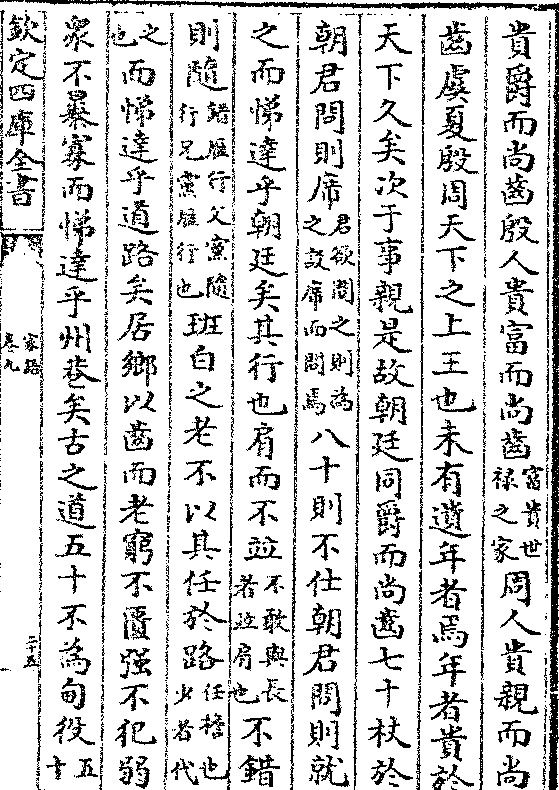 貴爵而尚齒殷人貴富而尚齒富貴世禄之家周人貴親而尚
齒虞夏殷周天下之上王也未有遺年者焉年者貴於
天下久矣次于事親是故朝廷同爵而尚齒七十杖於
朝君問則席君欲問之則為之設席而問焉八十則不仕朝君問則就
之而悌達乎朝廷矣其行也肩而不並不敢與長者並肩也不錯
則隨錯鴈行父黨隨行兄黨鴈行也班白之老不以其任於路任擔也少者代
之也而悌達乎道路矣居鄉以齒而老窮不匱强不犯弱
衆不暴寡而悌達乎州巷矣古之道五十不為甸役五十
欽定四庫全書
家語
卷九
二十五